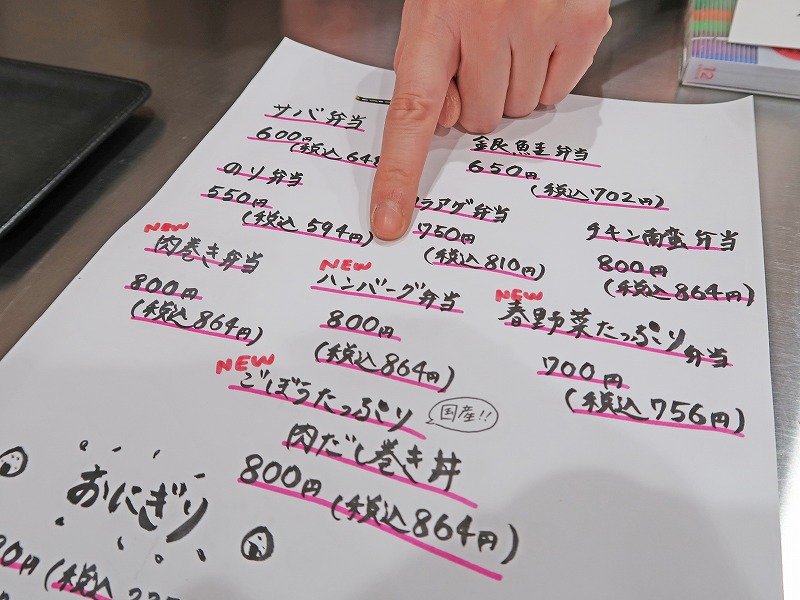 サバ弁当
600円
(税込 648
銀鮭弁当
650円
(税込702円)
のり弁当
550円
(税込 594円)
ラアゲ弁当
750円
(税込 810円)
チキン南蛮弁当
800円
(税込864円)
NEW
肉巻き弁当
800円
(税込864円)
NEW
ハンバーグ弁当
800円
(税込864円)
NEW
春野菜たっぷり弁当
700円
(税込756円)
NEW
ごぼうたっぷり
国産!!
肉だし巻き丼
800円(税込864円)
おにぎり
円(税込
12